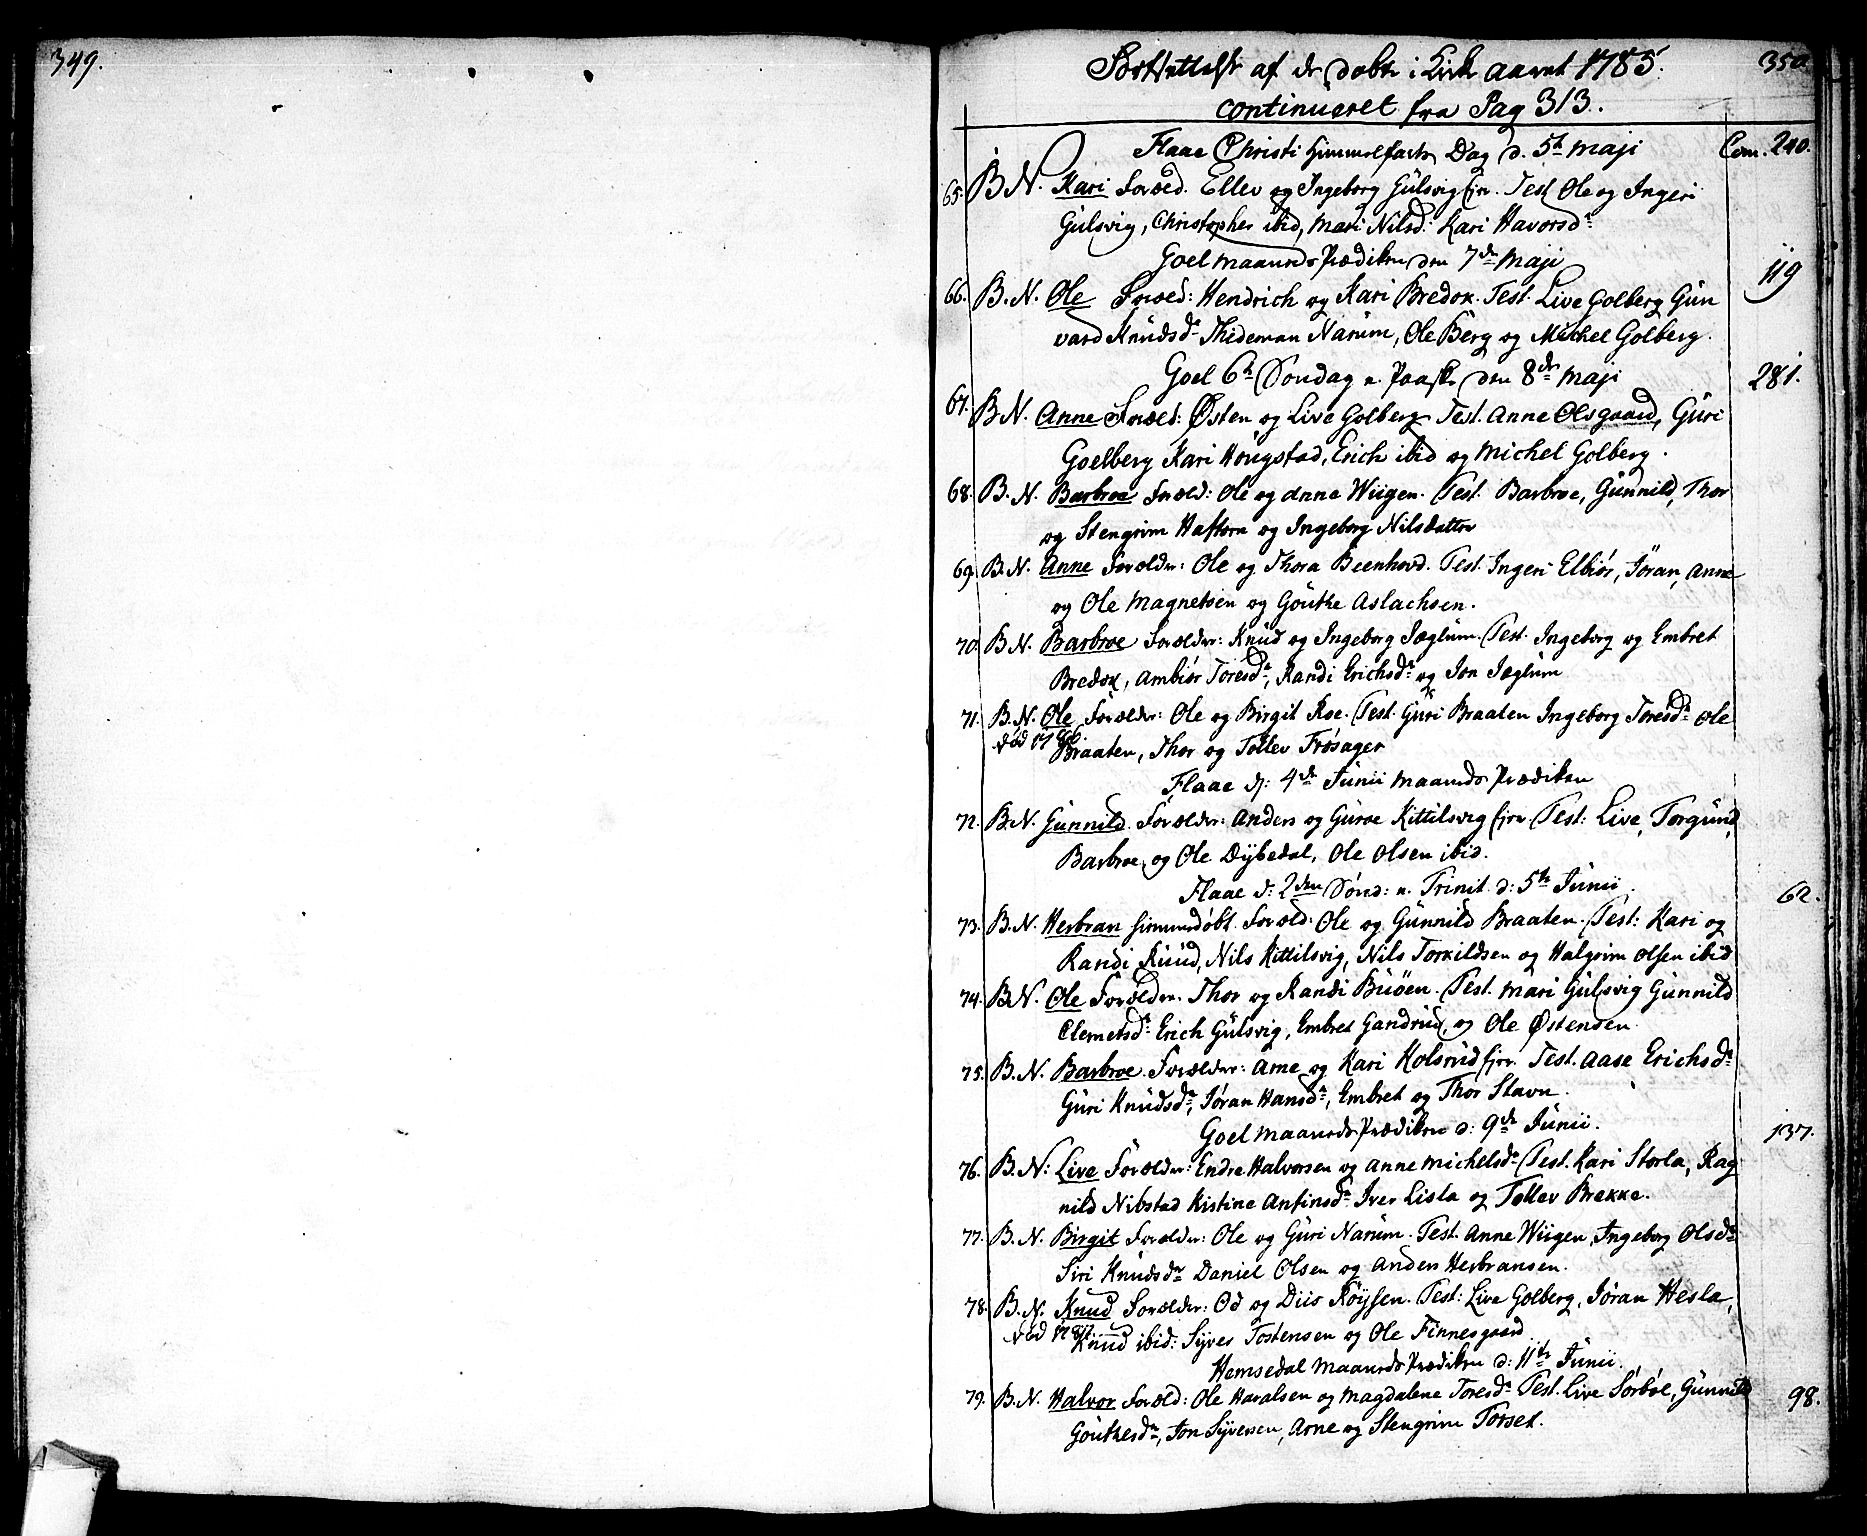 349.
350.
Fortsættelse af de døbte i Kirke aaret 1785.
continueret fra Pag 313.
Flaae Christi Himmelfarts Dag d. 5te Maji Com. 240.
65. B. N. Kari Foræld. Ellev og Ingeborg Gulsvig ejer. Test Ole og Ingeri
Gulsvig, Christopher ibid, Mari Nilsd. Kari Havorsdr
Goel Maaneds Prædiken den 7de Maji 119
66. B. N. Ole Foræld: Hendrich og Kari Bredok. Test. Live Golberg Gun
vard Knudsdr Thideman Narum, Ole Berg og Michel Golberg.
Goel 6te Søndag e. Paaske den 8de Maji 281.
67. B N. Anne Foræld: Østen og Live Golberg Test. Anne Olsgaard, Guri
Goelberg Kari Høugstad, Erich ibid og Michel Golberg.
68. B. N. Barbroe Foræld: Ole og Anne Wiigen. Test. Barbroe, Gunnild, Thor
og Stengrim Haftorn og Ingeborg Nilsdatter
69. B. N. Anne Forælder: Ole og Thora Beenhovd. Test. Ingeri Elbiør, Jøran, Anne
og Ole Magnetsen og Gouthe Aslachsen.
70. B. N. Barbroe Forælder: Knud og Ingeborg Jæglum. Test. Ingeborg og Embret
Bredok, Ambiør Toresdr, Randi Erichsdr og Jon Jæglum
71. B. N. Ole Forælder: Ole og Birgit Roe. Test. Guri Braaten Ingeborg Toresdr Ole
død 1786. Braaten, Thor og Tollev Frøsager
Flaae d: 4de Junii Maaneds Prædiken
72. B. N. Gunnild. Forælder: Anders og Guroe Kittilsvig ejer Test: Live, Torgund,
Barbroe, og Ole Dybedal, Ole Olsen ibid.
Flaae d: 2den Sønd: e. Trinit. d: 5te Junii. 62.
73. B. N. Herbran hiemmedøbt. Foræld: Ole og Gunnild Braaten. Test: Kari og
Randi Ruud, Nils Kittilsvig, Nils Torkildsen og Halgrim Olsen ibid
74. B. N. Ole Forælder. Thor og Randi Buøen. Test. Mari Gulsvig Gunnild
Clemetsdr Erich Gulsvig, Embret Gandrud, og Ole Østensen.
75. B. N. Barbroe. Forælder: Arne og Kari Kolsrud ejer. Test. Aase Erichsdr
Guri Knudsdr, Jøran Hansdr, Embret og Thor Stavn.
Goel Maaneds Prædiken d: 9de Junii. 137.
76. B. N: Live Forælder: Endre Halvorsen og Anne Michelsdr Test. Kari Storla, Rag
nild Nibstad Kistine Anfinsdr Iver Lisla og Tollev Brekke.
77. B. N. Birgit Forælder: Ole og Guri Narum. Test. Anne Wiigen, Ingeborg Olsdr
Siri Knudsdr Daniel Olsen og Anders Herbransen.
78. B. N. Knud Forælder: Od og Diis Røysen. Test: Live Golberg, Jøran Hesla,
død 1787. Knud ibid: Syver Tostensen og Ole Finnesgaard
Hemsedal Maaneds Prædiken d: 11te Junii.
79. B. N. Halvor Foræld: Ole Haralsen og Magdalene Toresdr Test. Live Sørbøe, Gunnild 98.
Gouthesdr, Jon Syversen, Arne og Stengrim Torset.